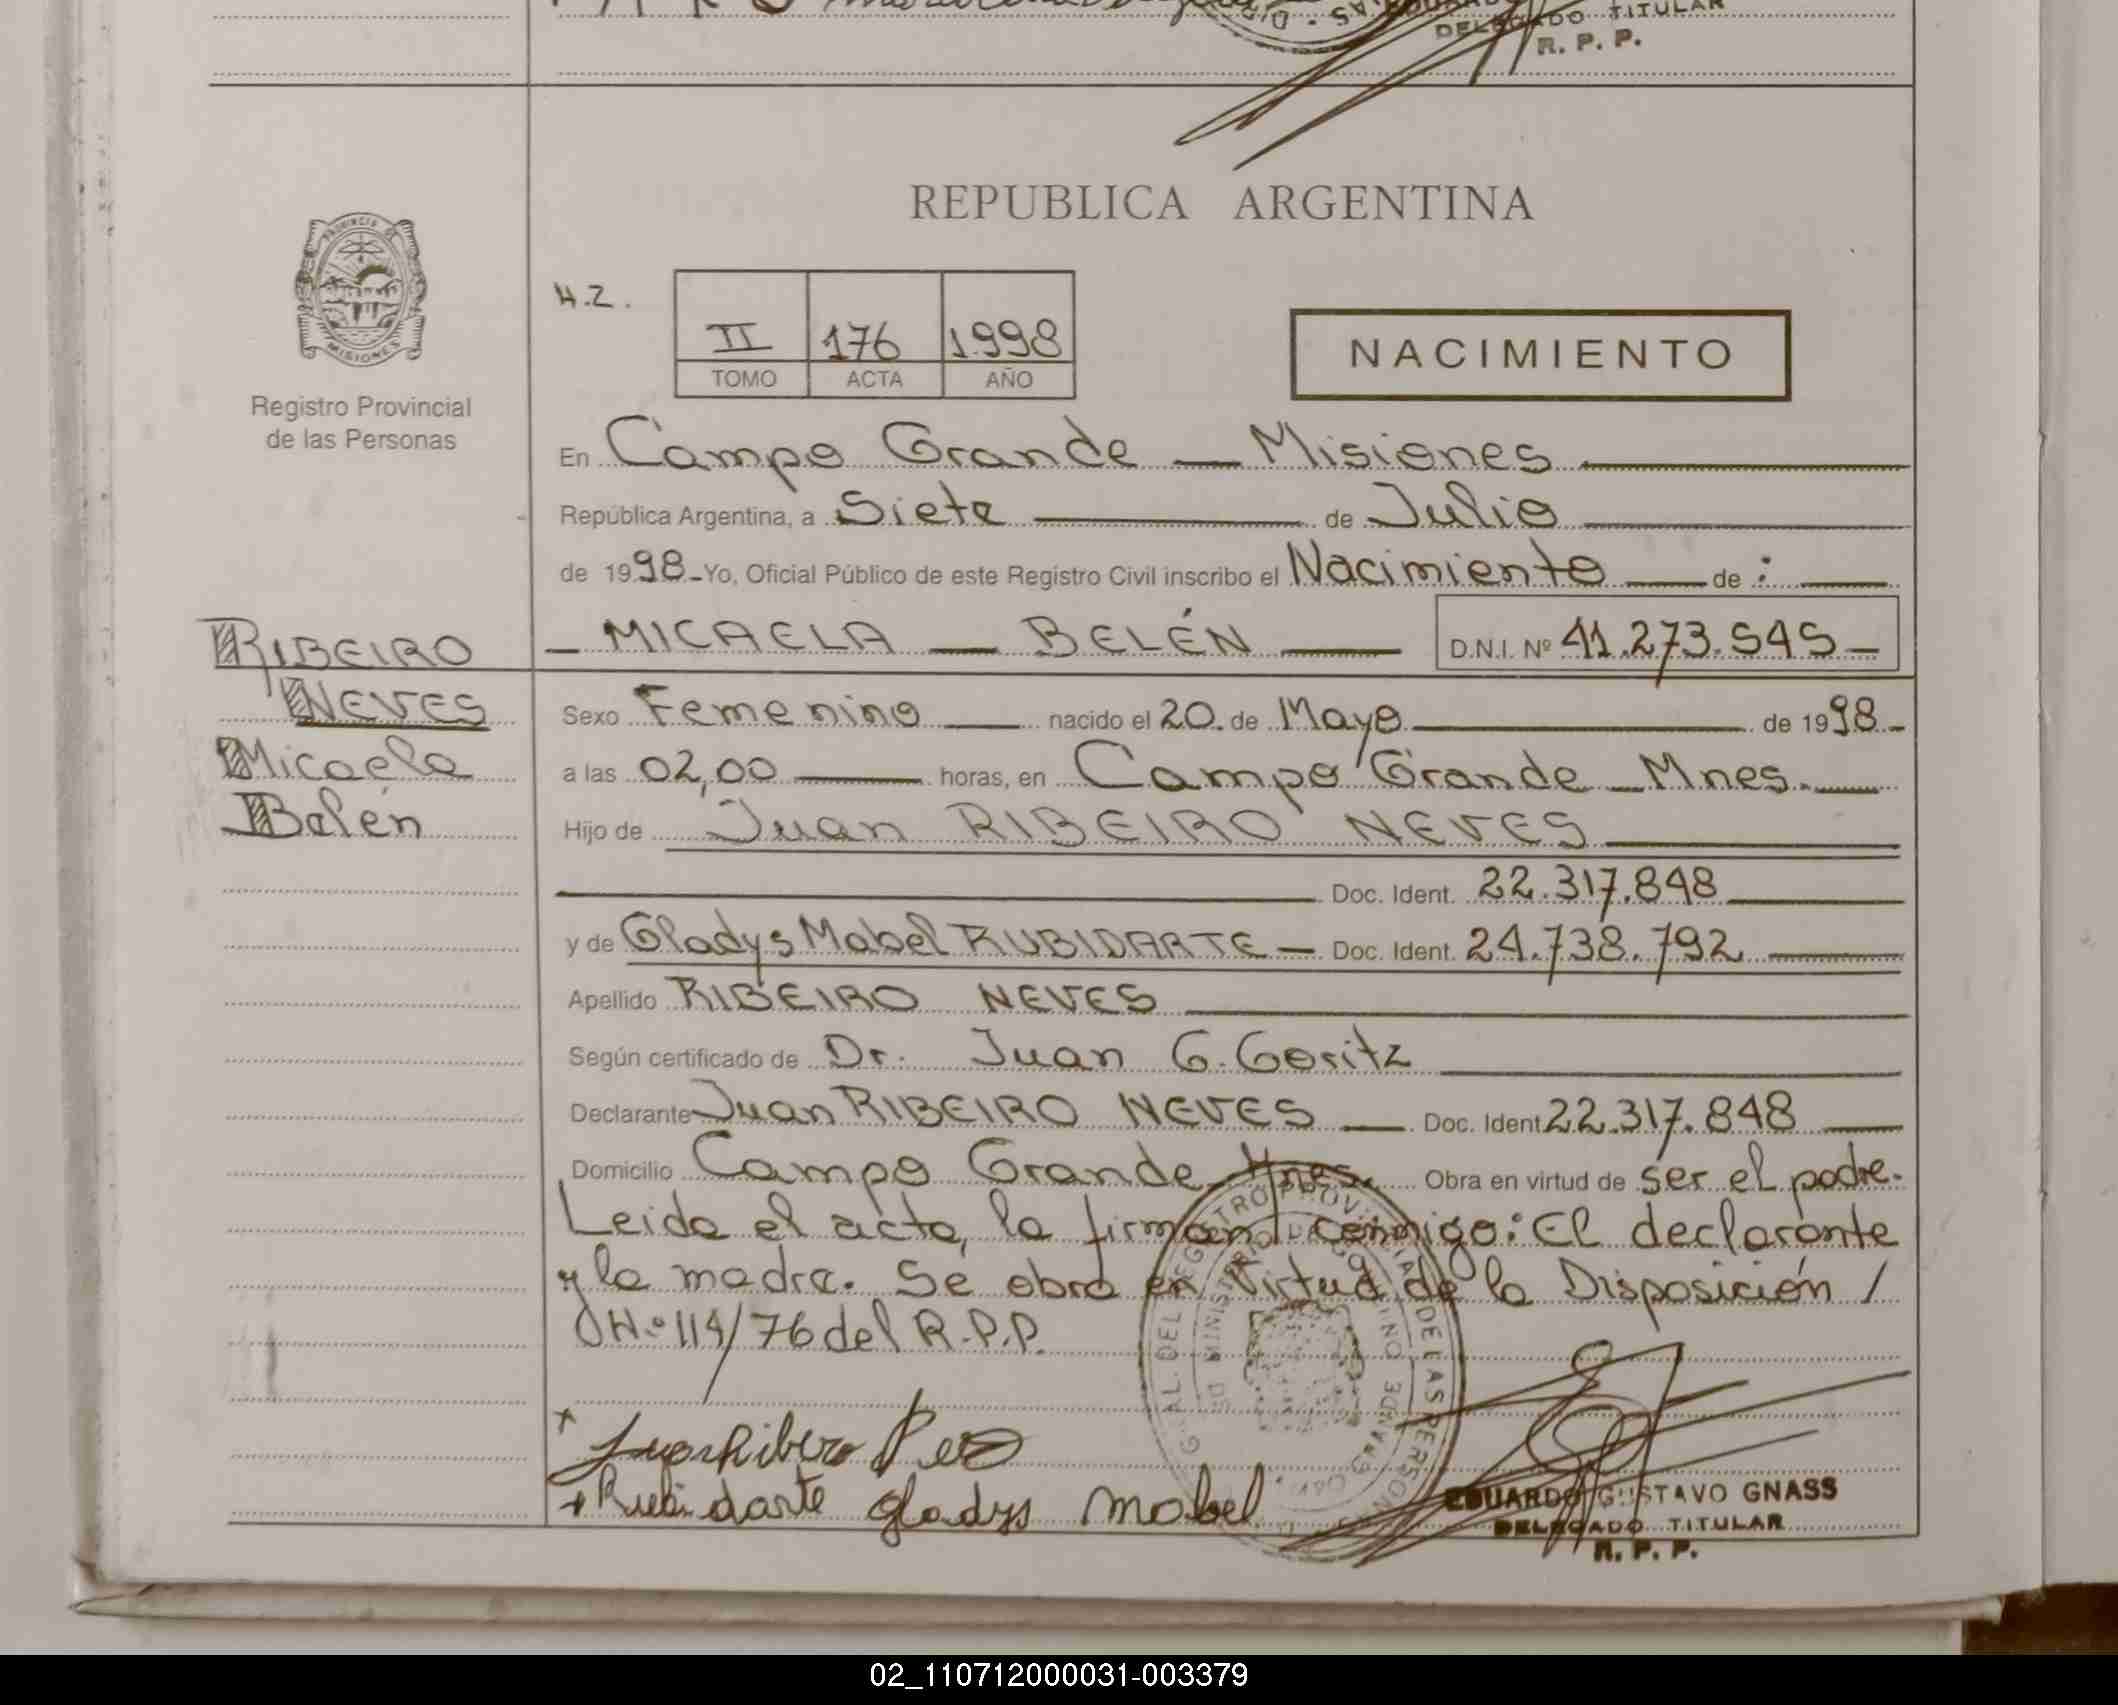 DELEGADO TITULAR
R. P. P.
REPUBLICA ARGENTINA
PROVINCIA DE
MISIONES
Registro Provincial
de las Personas
H.Z.
II 176 1998
TOMO ACTA AÑO
NACIMIENTO
En Campo Grande — Misiones
República Argentina, a Siete de Julio
de 1998 - Yo, Oficial Público de este Registro Civil inscribo el Nacimiento de :
RIBEIRO
NEVES
Micaela
Belén
— MICAELA — BELÉN — D.N.I. Nº 41.273.545 —
Sexo Femenino nacido el 20 de Mayo de 1998 -
a las 02,00 horas, en Campo Grande - Mnes.
Hijo de Juan RIBEIRO NEVES
Doc. Ident. 22.317.848
y de Gladys Mabel RUBIDARTE — Doc. Ident. 24.738.792
Apellido RIBEIRO NEVES
Según certificado de Dr. Juan G. Goritz
Declarante Juan RIBEIRO NEVES — Doc. Ident 22.317.848
Domicilio Campo Grande - Mnes. Obra en virtud de ser el padre.
Leida el acta, la firman conmigo: El declarante
y la madre. Se obra en Virtud de la Disposición /
Nº 114/76 del R.P.P.
+ Rubidarte gladys mabel
EDUARDO GUSTAVO GNASS
DELEGADO TITULAR
R. P. P.
02_110712000031-003379